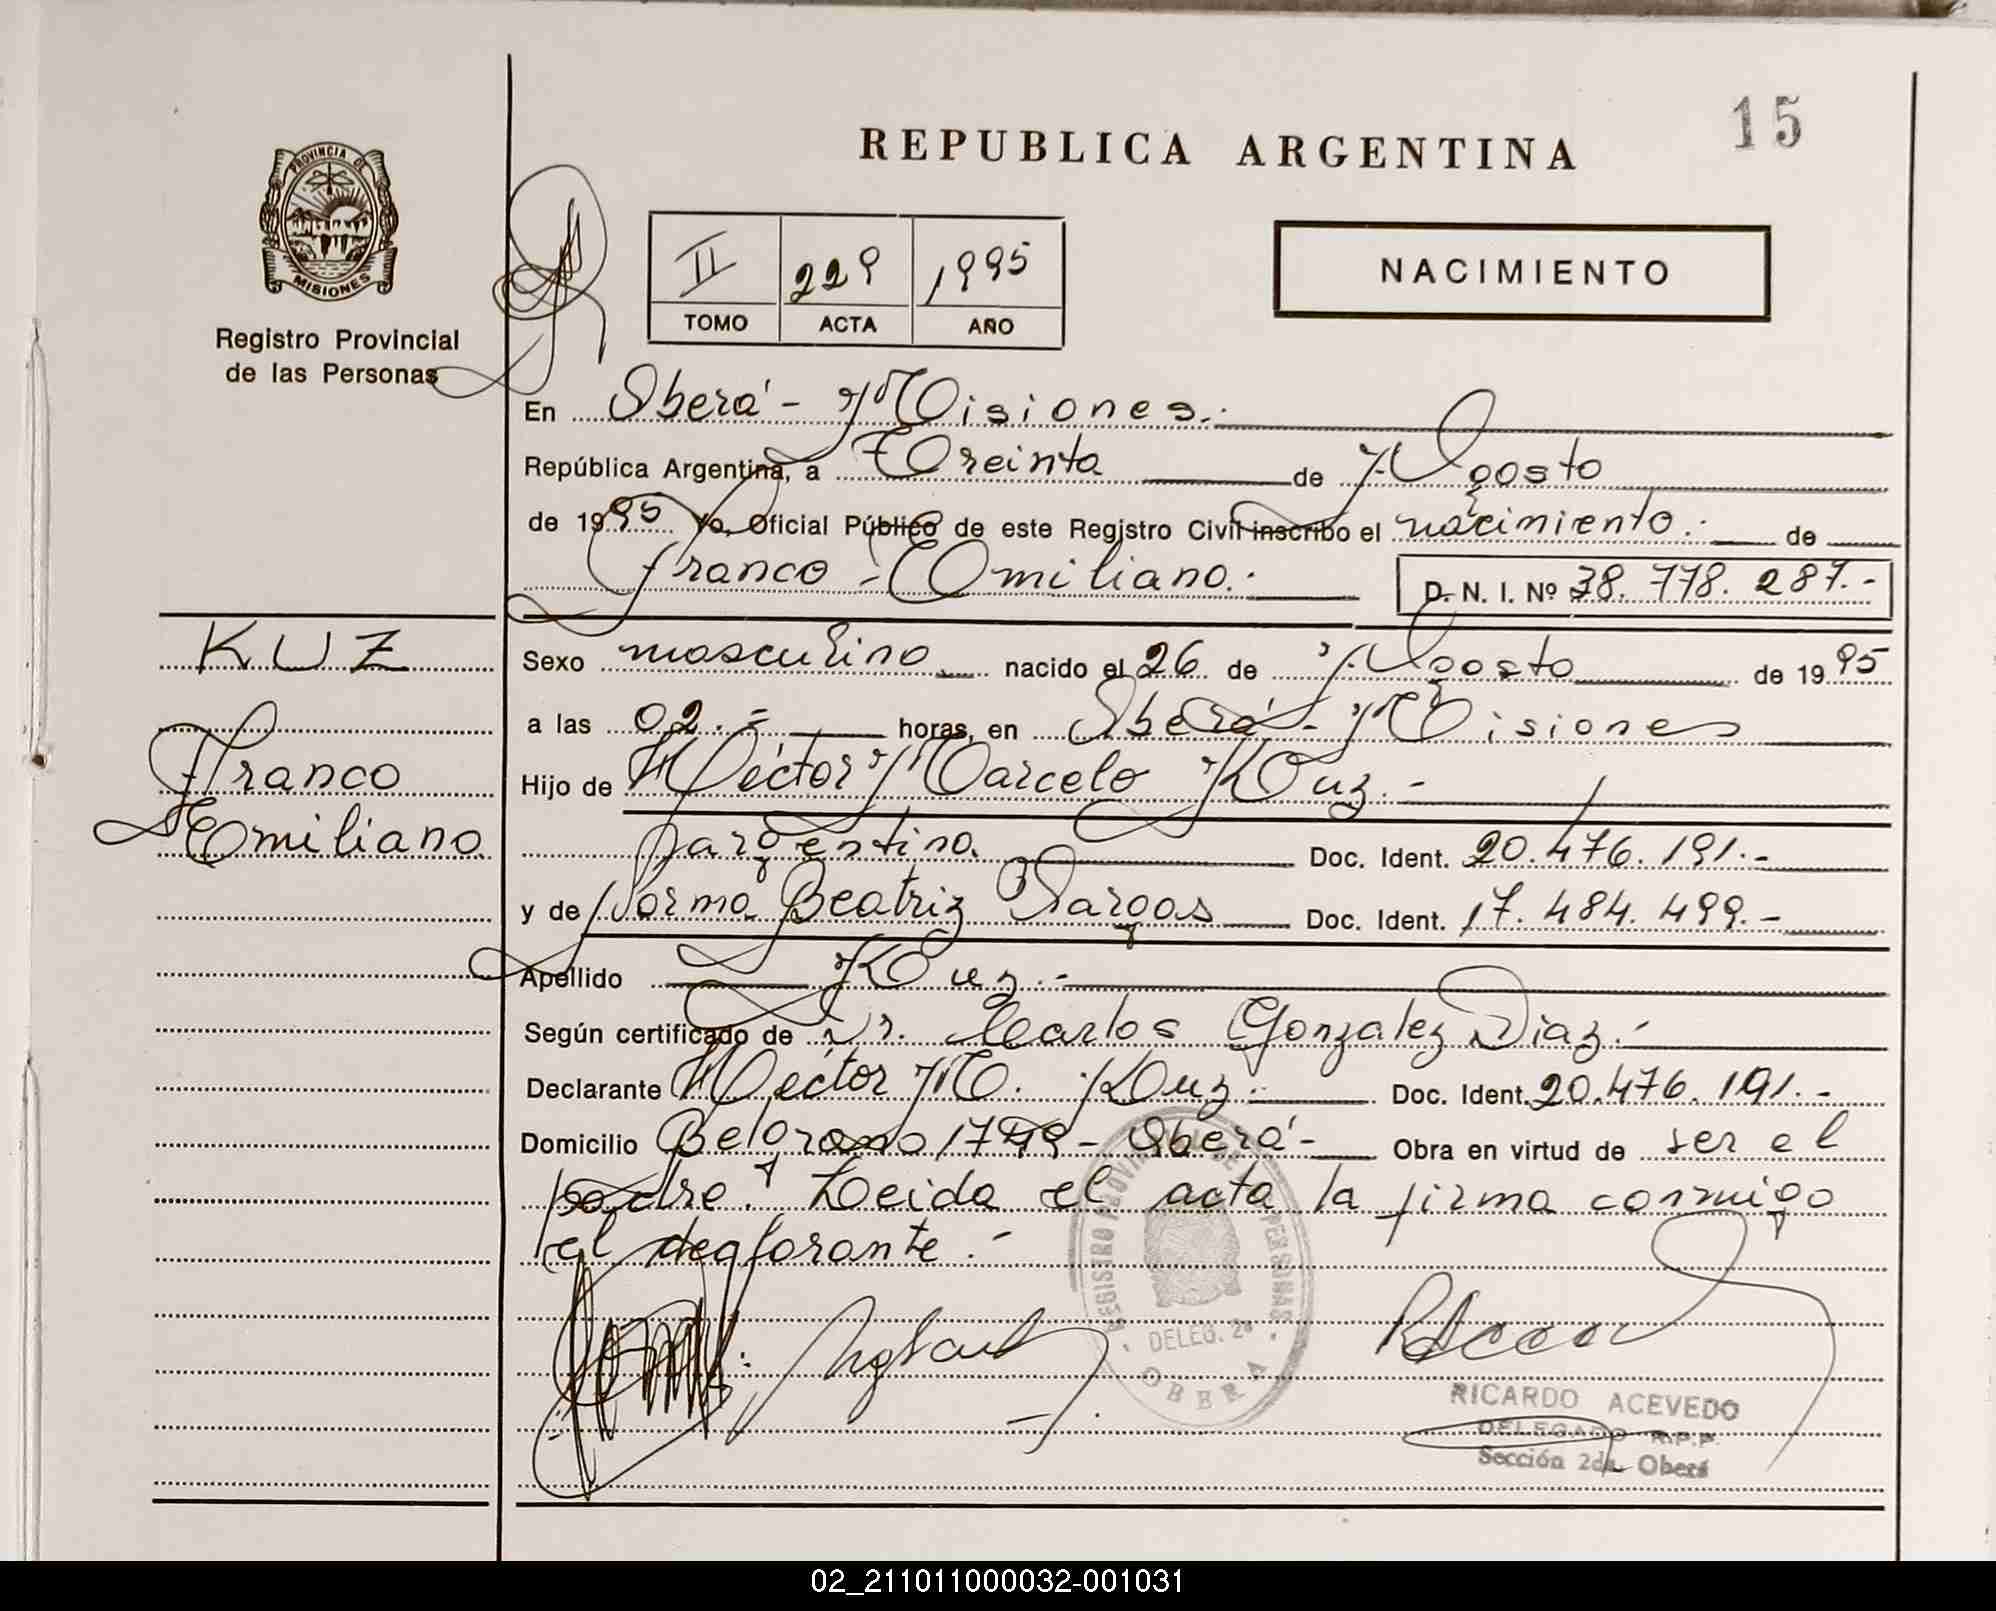 15
REPUBLICA ARGENTINA
PROVINCIA DE
MISIONES
Registro Provincial
de las Personas
II 229 1995
TOMO ACTA AÑO
NACIMIENTO
En Oberá - Misiones.-
República Argentina, a Treinta de Agosto
de 1995 Yo, Oficial Público de este Registro Civil inscribo el nacimiento.- de
Franco - Emiliano.- D. N. I. Nº 38.778.287.-
KUZ
Franco
Emiliano
Sexo masculino nacido el 26 de Agosto de 1995
a las 02.- horas, en Oberá - Misiones
Hijo de Héctor Marcelo Kuz.-
argentino. Doc. Ident. 20.476.191.-
y de Norma Beatriz Vargas Doc. Ident. 17.484.499.-
Apellido Kuz.-
Según certificado de Dr. Carlos Gonzalez Diaz.-
Declarante Héctor M. Kuz.- Doc. Ident. 20.476.191.-
Domicilio Belgrano 1749 - Oberá - Obra en virtud de ser el
padre. Leida el acta la firma conmigo
el declarante.-
REGISTRO PROVINCIAL DE LAS PERSONAS
DELEG. 2ª
OBERA
RICARDO ACEVEDO
DELEGADO R.P.P.
Sección 2da. Oberá
02_211011000032-001031